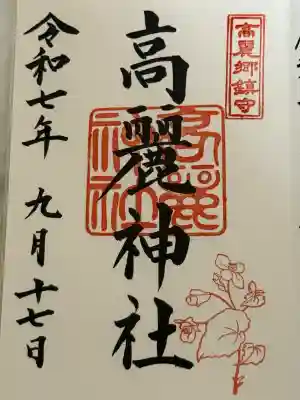 高麗郷鎮守
高麗神社
高麗神社
令和七年 九月十七日